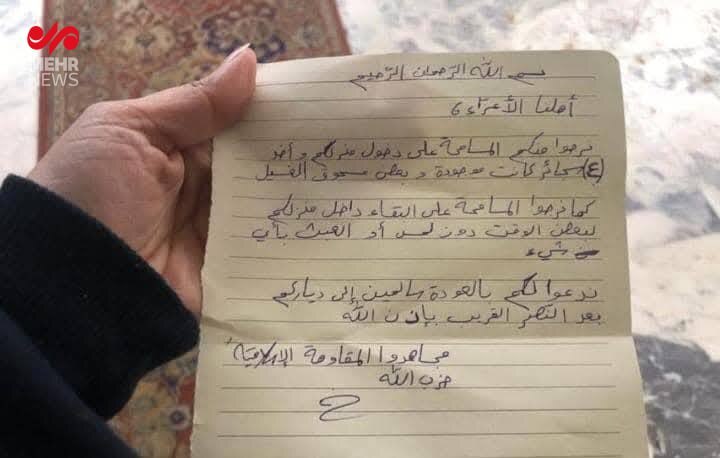 MEHR
NEWS
بسم الله الرحمان الرحيم
أهلنا الأعزاء،
نرجوا منكم المسامحة على دخول منزلكم و أخذ
(٤) سجائر كانت موجودة و بعض مسحوق الغسيل
كما نرجوا المسامحة على البقاء داخل منزلكم
لبعض الوقت دون لمس أو العبث بأي
شيء
ندعوا لكم بالعودة سالمين إلى دياركم
بعد النصر القريب بإذن الله
مجاهدوا المقاومة الإسلامية
حزب الله